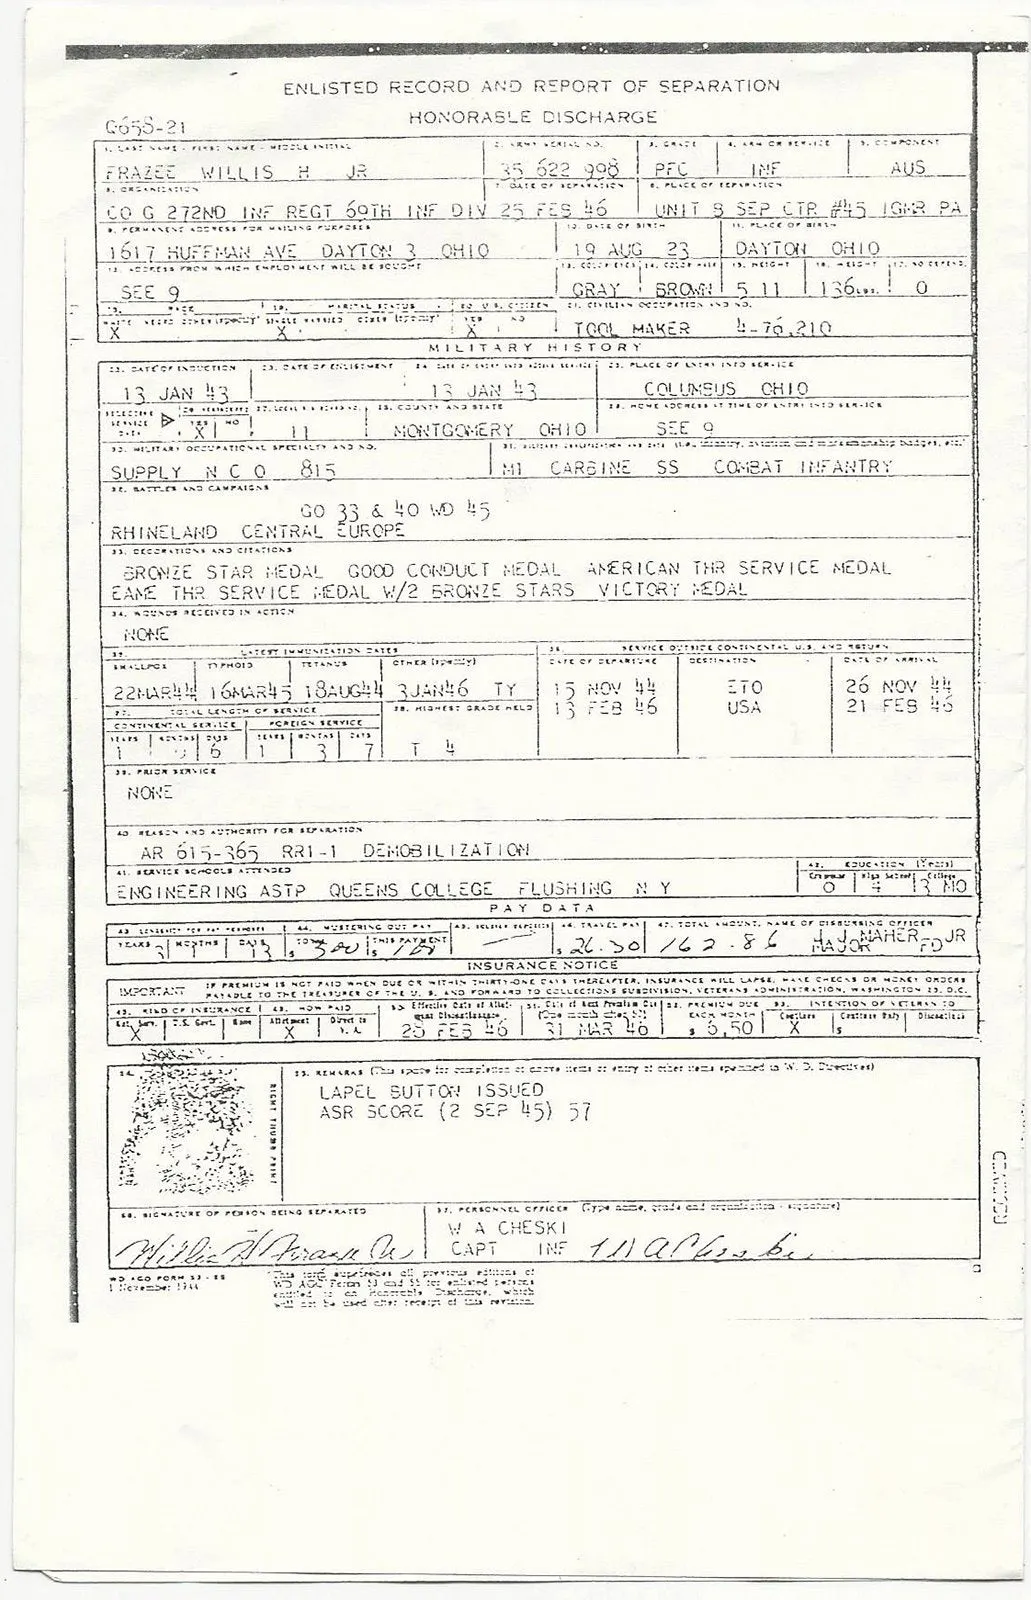 ENLISTED RECORD AND REPORT OF SEPARATION
HONORABLE DISCHARGE
G658-21
1. LAST NAME - FIRST NAME - MIDDLE INITIAL 2. ARMY SERIAL NO. 3. GRADE 4. ARM OR SERVICE 5. COMPONENT
FRAZEE WILLIS H JR 35 622 998 PFC INF AUS
6. ORGANIZATION 7. DATE OF SEPARATION 8. PLACE OF SEPARATION
CO G 272ND INF REGT 69TH INF DIV 25 FEB 46 UNIT B SEP CTR #45 IGMR PA
9. PERMANENT ADDRESS FOR MAILING PURPOSES 10. DATE OF BIRTH 11. PLACE OF BIRTH
1617 HUFFMAN AVE DAYTON 3 OHIO 19 AUG 23 DAYTON OHIO
12. ADDRESS FROM WHICH EMPLOYMENT WILL BE SOUGHT 13. COLOR EYES 14. COLOR HAIR 15. HEIGHT 16. WEIGHT 17. NO. DEPEND.
SEE 9 GRAY BROWN 5 11 136 LBS. 0
18. RACE 19. MARITAL STATUS 20. U.S. CITIZEN 21. CIVILIAN OCCUPATION AND NO.
WHITE NEGRO OTHER (specify) SINGLE MARRIED OTHER (specify) YES NO
X X X TOOL MAKER 4-76.210
MILITARY HISTORY
22. DATE OF INDUCTION 23. DATE OF ENLISTMENT 24. DATE OF ENTRY INTO ACTIVE SERVICE 25. PLACE OF ENTRY INTO SERVICE
13 JAN 43 13 JAN 43 COLUMBUS OHIO
SELECTIVE SERVICE DATA 26. REGISTERED YES NO 27. LOCAL S.S. BOARD NO. 28. COUNTY AND STATE 29. HOME ADDRESS AT TIME OF ENTRY INTO SERVICE
X 11 MONTGOMERY OHIO SEE 9
30. MILITARY OCCUPATIONAL SPECIALTY AND NO. 31. MILITARY QUALIFICATION AND DATE (i.e., infantry, aviation and marksmanship badges, etc.)
SUPPLY N C O 815 M1 CARBINE SS COMBAT INFANTRY
32. BATTLES AND CAMPAIGNS
GO 33 & 40 WD 45
RHINELAND CENTRAL EUROPE
33. DECORATIONS AND CITATIONS
BRONZE STAR MEDAL GOOD CONDUCT MEDAL AMERICAN THR SERVICE MEDAL
EAME THR SERVICE MEDAL W/2 BRONZE STARS VICTORY MEDAL
34. WOUNDS RECEIVED IN ACTION
NONE
35. LATEST IMMUNIZATION DATES 36. SERVICE OUTSIDE CONTINENTAL U.S. AND RETURN
SMALLPOX TYPHOID TETANUS OTHER (specify) DATE OF DEPARTURE DESTINATION DATE OF ARRIVAL
22MAR44 16MAR45 18AUG44 3JAN46 TY 15 NOV 44 ETO 26 NOV 44
13 FEB 46 USA 21 FEB 46
37. TOTAL LENGTH OF SERVICE 38. HIGHEST GRADE HELD
CONTINENTAL SERVICE FOREIGN SERVICE
YEARS MONTHS DAYS YEARS MONTHS DAYS
1 6 1 3 7 T 4
39. PRIOR SERVICE
NONE
40. REASON AND AUTHORITY FOR SEPARATION
AR 615-365 RR1-1 DEMOBILIZATION
41. SERVICE SCHOOLS ATTENDED 42. EDUCATION (Years)
Grammar High School College
ENGINEERING ASTP QUEENS COLLEGE FLUSHING N Y 0 4 3 MO
PAY DATA
43. LONGEVITY FOR PAY PURPOSES 44. MUSTERING OUT PAY 45. SOLDIER DEPOSITS 46. TRAVEL PAY 47. TOTAL AMOUNT, NAME OF DISBURSING OFFICER
YEARS 3 MONTHS 1 DAYS 13 TOTAL $ 300 THIS PAYMENT $ 100 $ 26.30 162.86 J MAHER JR
MAJOR FD
INSURANCE NOTICE
IMPORTANT IF PREMIUM IS NOT PAID WHEN DUE OR WITHIN THIRTY-ONE DAYS THEREAFTER, INSURANCE WILL LAPSE. MAKE CHECKS OR MONEY ORDERS
PAYABLE TO THE TREASURER OF THE U. S. AND FORWARD TO COLLECTIONS SUBDIVISION, VETERANS ADMINISTRATION, WASHINGTON 25, D.C.
48. KIND OF INSURANCE 49. HOW PAID 50. Effective Date of Allotment Discontinuance 51. Date of Next Premium Due (One month after 50) 52. PREMIUM DUE EACH MONTH 53. INTENTION OF VETERAN TO
Nat. Serv. U.S. Govt. None Allotment Direct to V. A. Continue Continue Only Discontinue
X X 28 FEB 46 31 MAR 46 $ 6.50 X $
54. RIGHT THUMB PRINT
55. REMARKS (This space for completion of above items or entry of other items specified in W. D. Directives)
LAPEL BUTTON ISSUED
ASR SCORE (2 SEP 45) 57
56. SIGNATURE OF PERSON BEING SEPARATED 57. PERSONNEL OFFICER (Type name, grade and organization - signature)
W A CHESKI
Willis H Frazee Jr CAPT INF W A Cheski
WD AGO FORM 53-55
1 November 1944
This form supersedes all previous editions of
WD AGO Forms 53 and 55 for enlisted persons
entitled to an Honorable Discharge, which
will not be used after receipt of this revision.